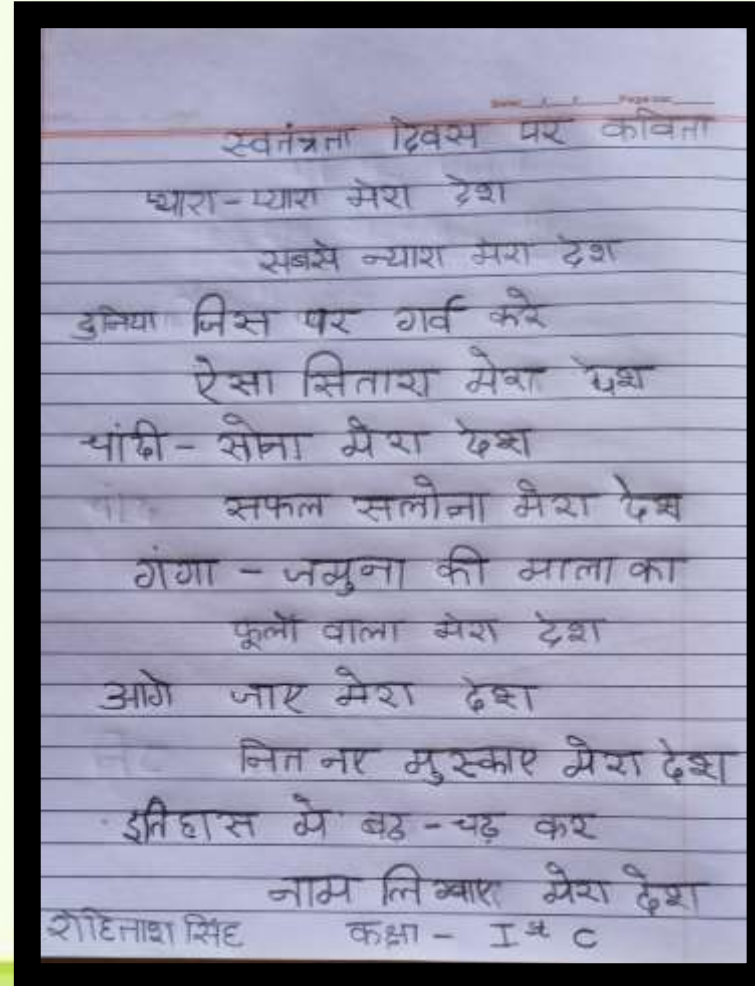 Date / / Page no.
स्वतंत्रता दिवस पर कविता
प्यारा-प्यारा मेरा देश
सबसे न्यारा मेरा देश
दुनिया जिस पर गर्व करे
ऐसा सितारा मेरा देश
चांदी - सोना मेरा देश
सफल सलोना मेरा देश
गंगा - जमुना की माला का
फूलों वाला मेरा देश
आगे जाए मेरा देश
नित नए मुस्काए मेरा देश
इतिहास मे बढ़ -चढ़ कर
नाम लिखाए मेरा देश
रोहिताश सिंह कक्षा - Ist C